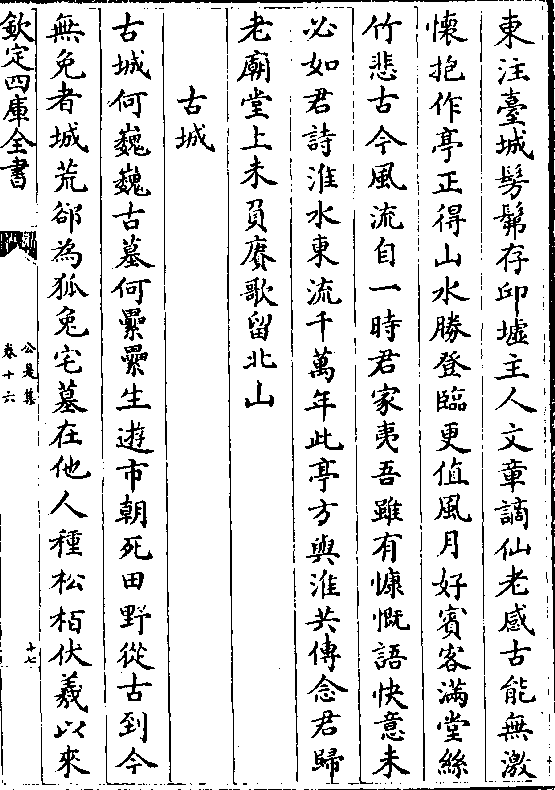 東注臺城髣髴存邱墟主人文章謫仙老感古能無激
懷抱作亭正得山水勝登臨更值風月好賓客滿堂絲
竹悲古今風流自一時君家夷吾雖有慷慨語快意未
必如君詩淮水東流千萬年此亭方與淮共傳念君歸
老廟堂上未負賡歌留北山
古城
古城何巍巍古墓何纍纍生遊市朝死田野從古到今
無免者城荒郤為狐兔宅墓在他人種松栢伏羲以來
欽定四庫全書
公是集
卷十六
十七